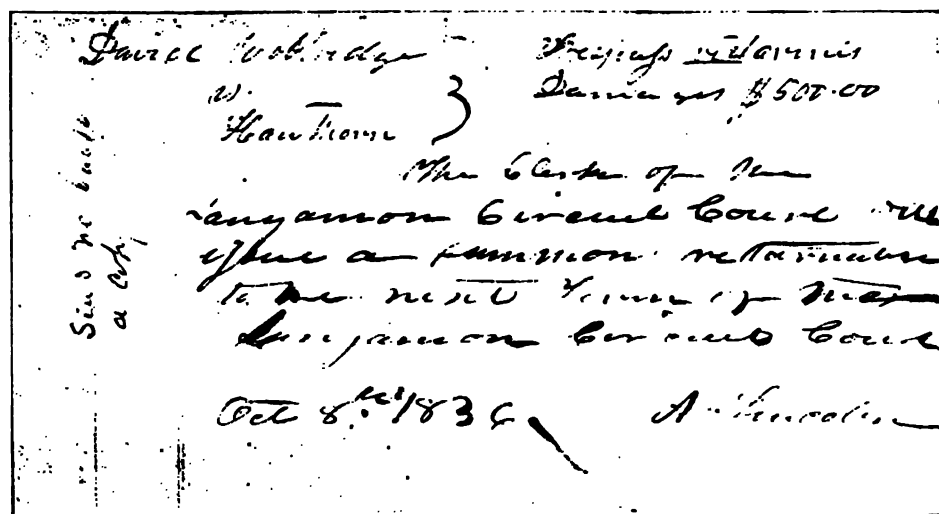 David Woolridge
vs.
Hawthorn
Trespass vi et armis
Damages $500.00
The Clerk of the
Sangamon Circuit Court will
issue a summon returnable
to the next Term of the
Sangamon Circuit Court
Oct 8th 1836
A. Lincoln
Send me back
a copy